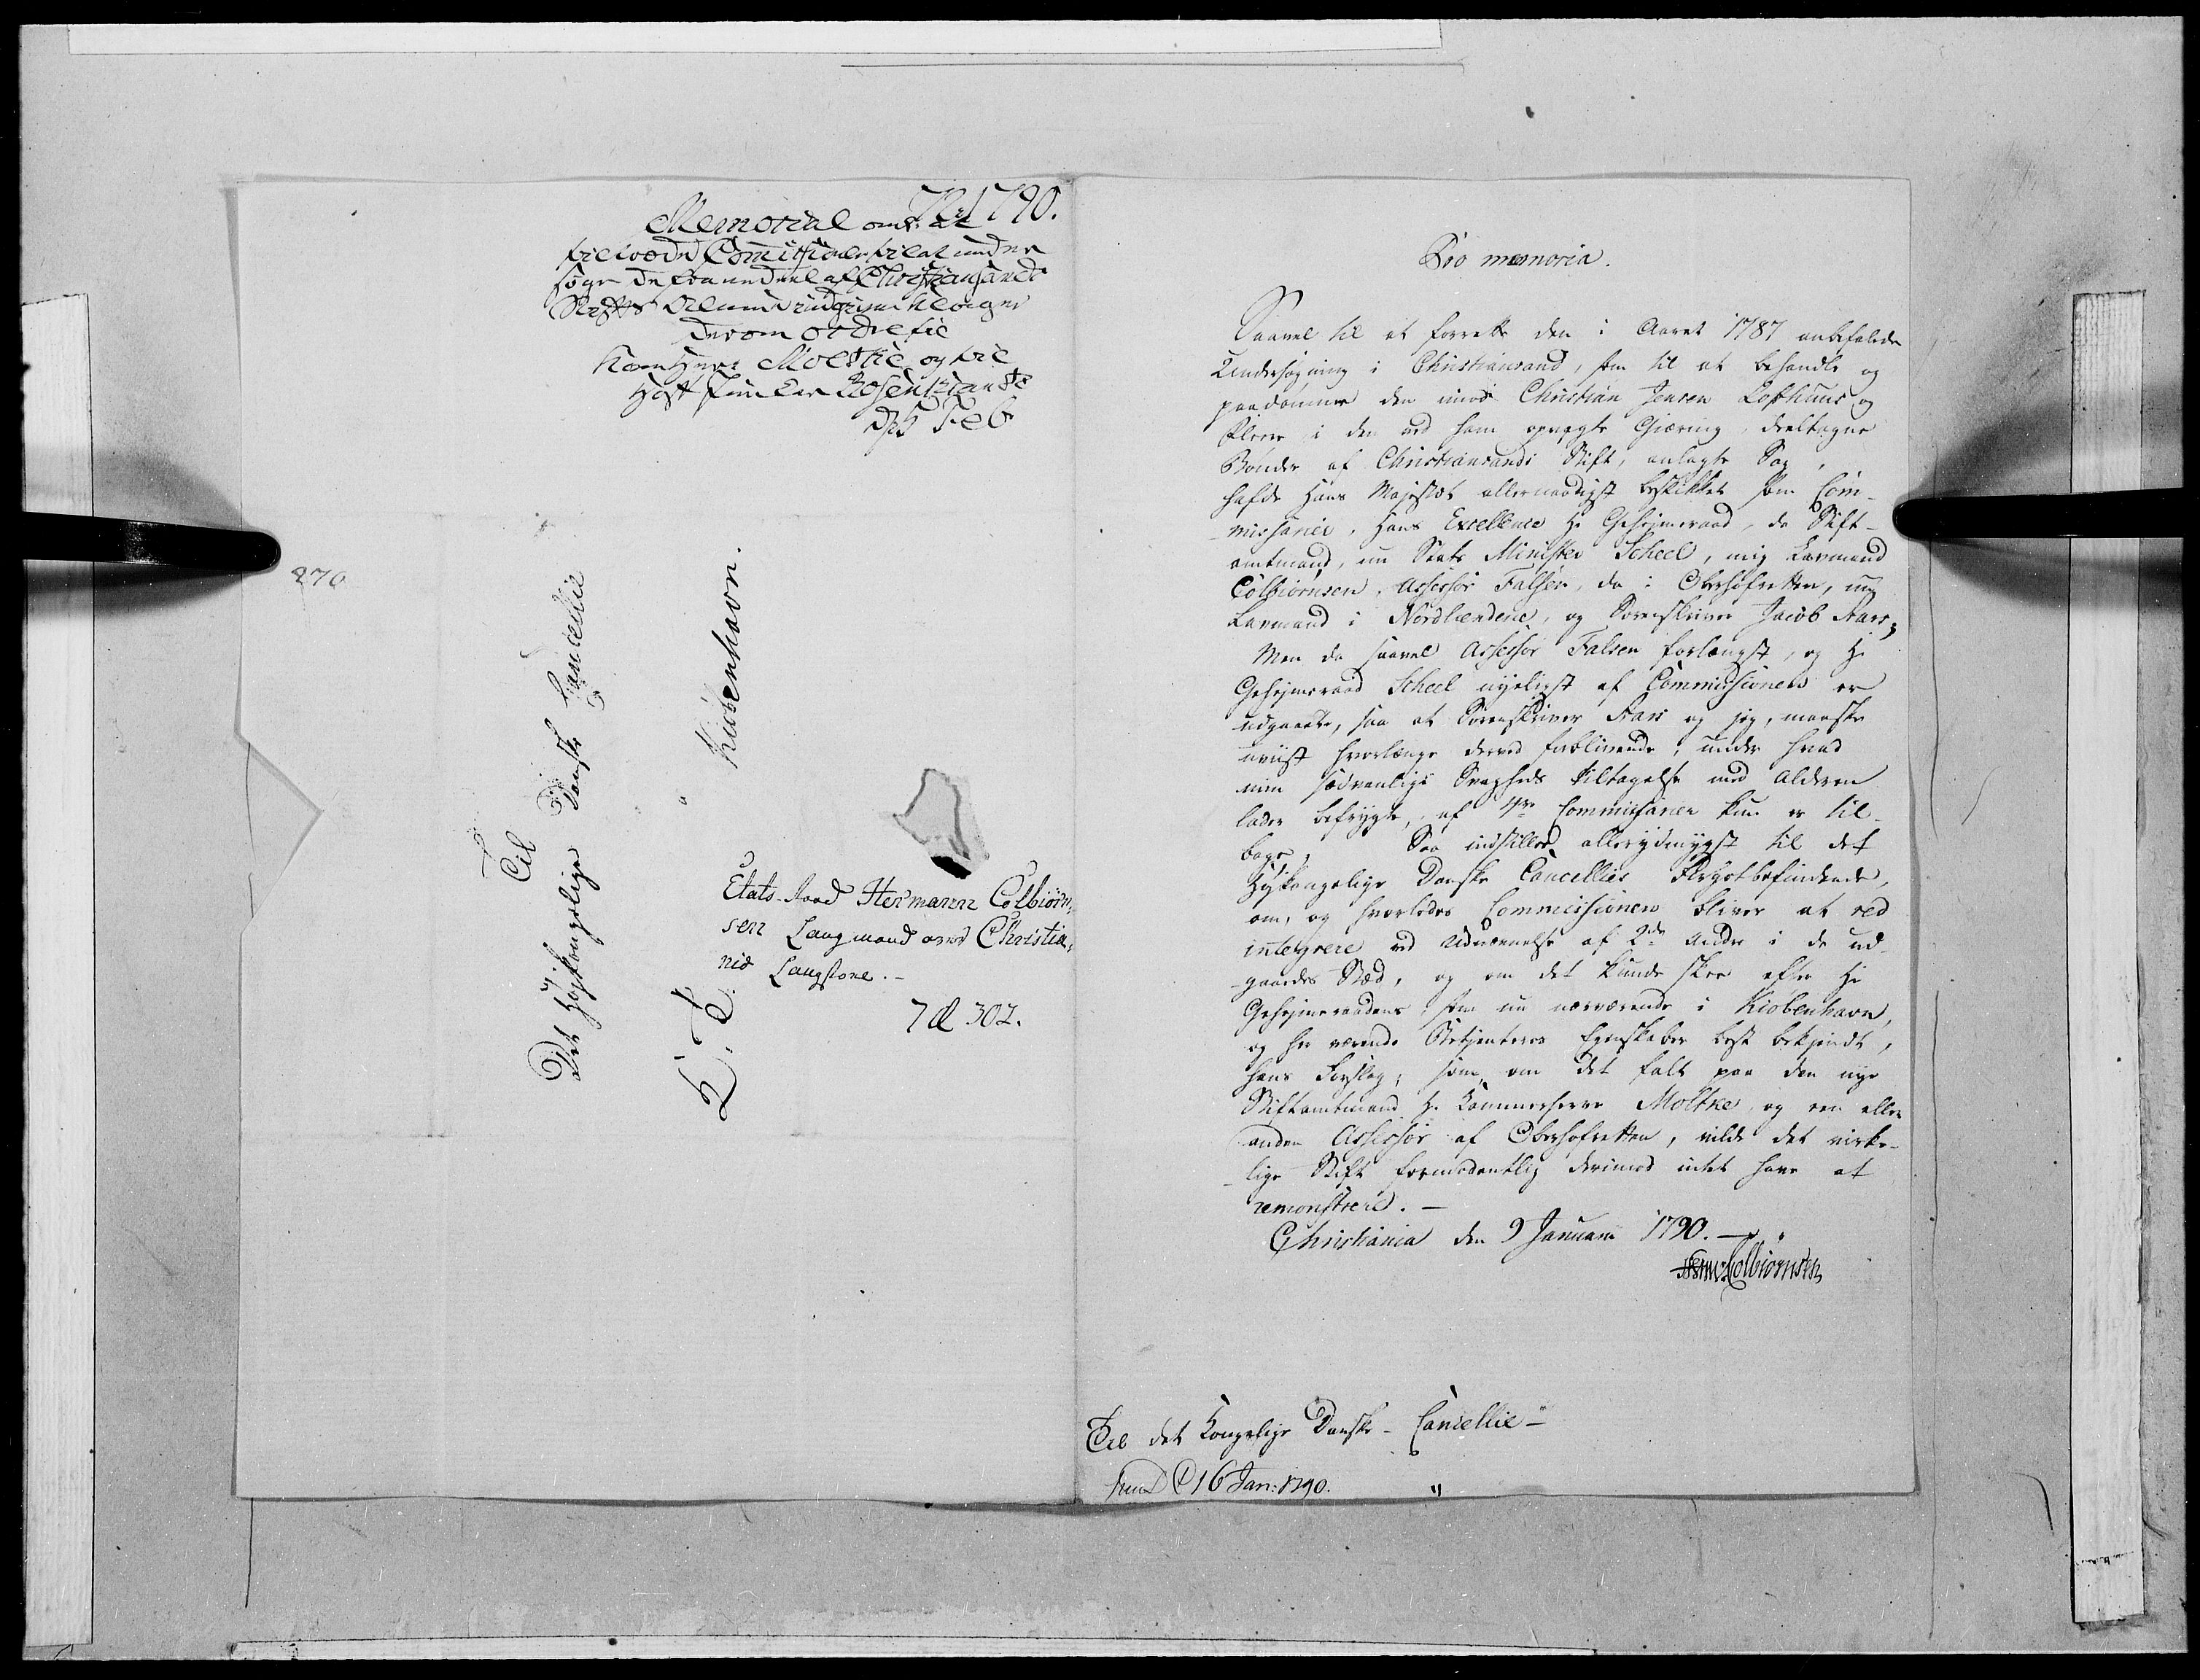 Memorial om at 1790.
tiltræde Comissionen til at under
søge de fra en deel af Christiansands
Stifts Almue indgivne Klager
derom ordre til
Kamherre Moltke og til
Hoff Junker Rosenkrantz
D 5 Feb
270
Til
Det Høykongelige Danske Cancellie
Kiøbenhavn.
P. T.
Etats-Raad Hermann Colbiørn,
sen Laugmand over Christia,
nia Laugstoel. -
7 d 302.
Pro memoria.
Saavel til at forrette den i Aaret 1787 anbefalede
Undersøgning i Christiansand, som til at behandle og
paadømme den imod Christian Jensen Lofthuus og
Fleere i den ved ham opvagte Giæring, deeltagne
Bønder af Christiansands Stift, anlagte Sag,
hafde Hans Majestæt allernaadigst beskikket som Com-
missarier, Hans Excellence Hr Geheimeraad, da Stift-
amtmand, nu Stats Minister Scheel, mig Laumand
Colbiørnsen, Assessor Falsen, da i Oberhofretten, nu
Laumand i Nordlændene, og Sorenskriver Jacob Aars;
Men da saavel Assessor Falsen forlængst, og Hr
Geheimeraad Scheel nyeligst af Commissionen er
udgaaede, saa at Sorenskriver Aars og jeg, maaske
uvist hvorlænge derved forblivende, under hvad
min sædvanlige Svagheds Tiltagelse med Alderen
lader befrygte, af 4re Commissarier kun er til-
bage; Saa indstilles allerydmygst til det
Høykongelige Danske Cancellies Forgotbefindende,
om, og hvorledes Commissionen bliver at red
integrere ved Udnævnelse af 2de Andre i de ud-
gaaedes Stæd, og om det kunde skee efter Hr
Geheimeraadens som nu nærværende i Kiøbenhavn,
og her værende Betjenteres Egenskaber best bekjendt,
hans Forslag; som, om det falt paa den nye
Stiftamtmand Hr Kammerherre Moltke og een eller
anden Assessor af Oberhofretten, vilde det virke-
lige Stift formodentlig derimod intet have at
remonstrere. -
Christiania den 9 Januarii 1790. -
Herm: Colbiørnsen
Til det Kongelige Danske Cancellie -
D 16 Jan: 1790.